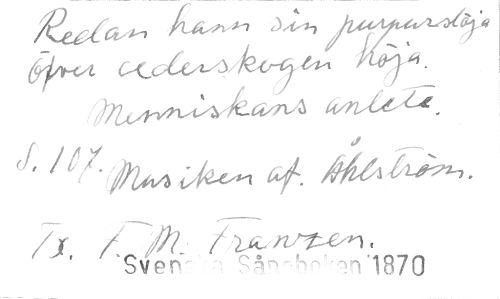 Redan hann sin purpurslöja
Öfver cederskogen höja.
Menniskans anlete.
S. 107. Musiken af. Åhlström.
Tx. F. M. Franzen.
Svenska Sångboken 1870